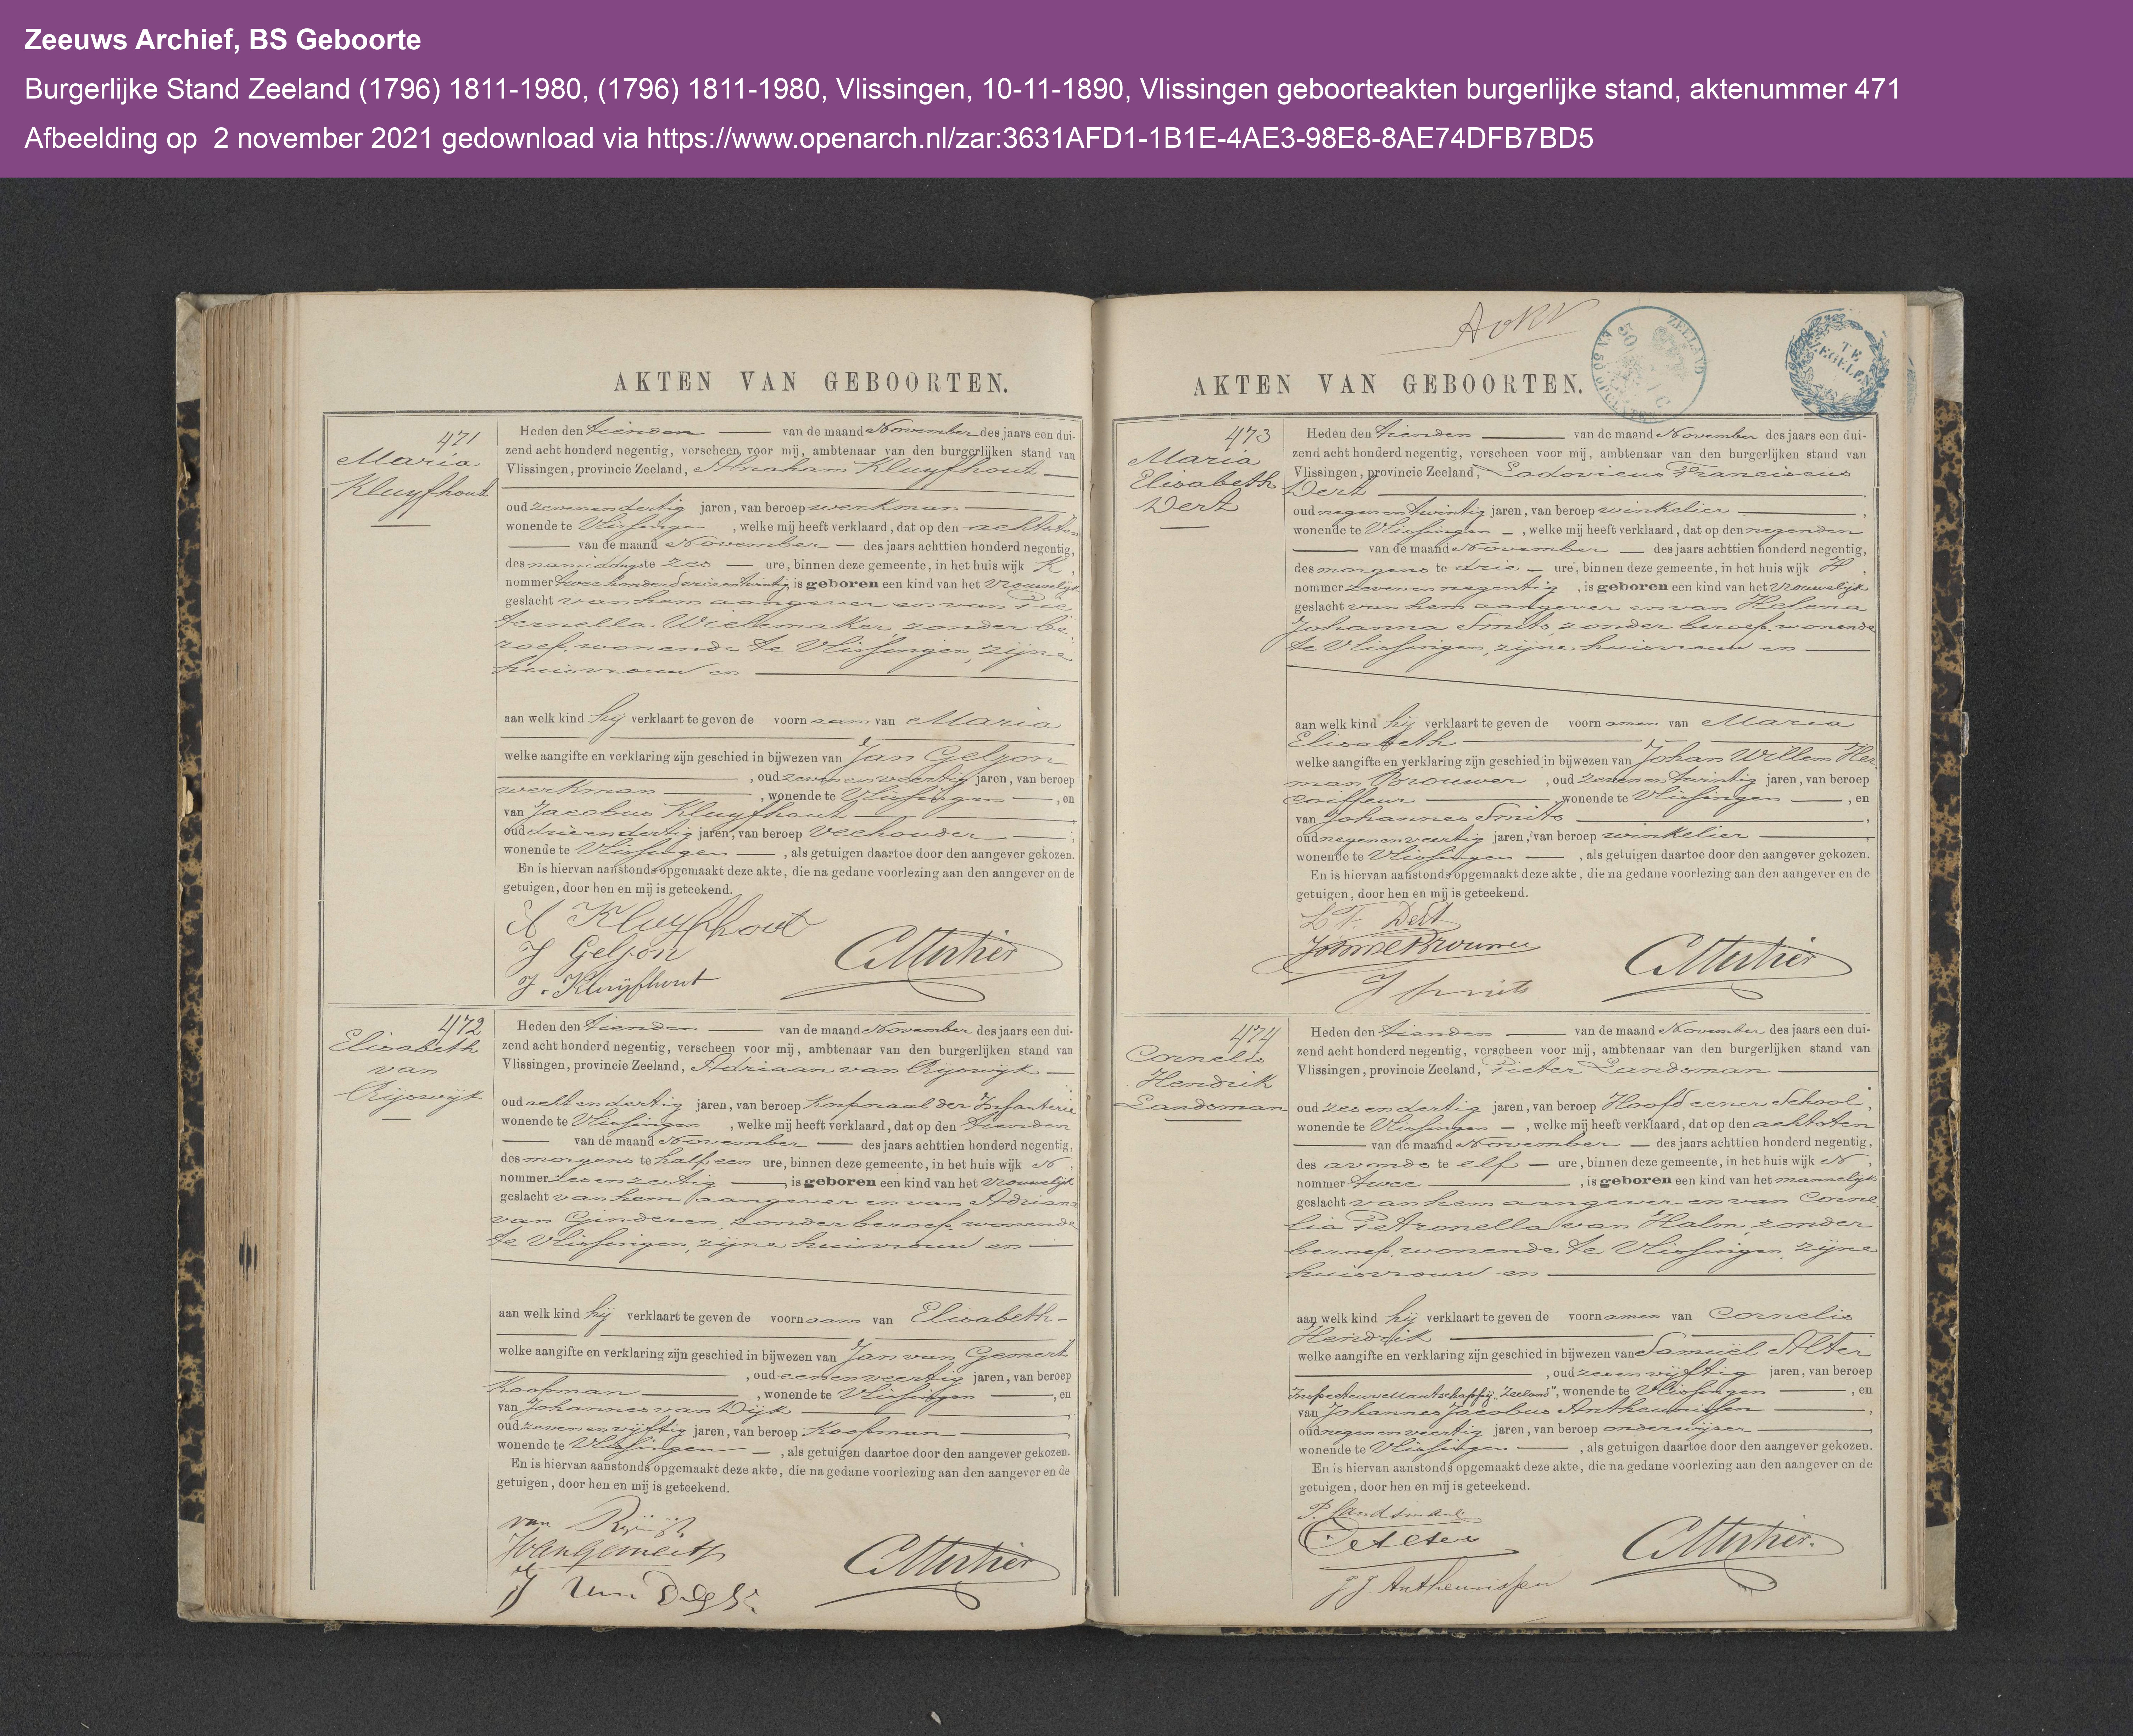 Zeeuws Archief, BS Geboorte
Burgerlijke Stand Zeeland (1796) 1811-1980, (1796) 1811-1980, Vlissingen, 10-11-1890, Vlissingen geboorteakten burgerlijke stand, aktenummer 471
Afbeelding op 2 november 2021 gedownload via https://www.openarch.nl/zar:3631AFD1-1B1E-4AE3-98E8-8AE74DFB7BD5
AKTEN VAN GEBOORTEN.
471
Maria
Kluyfhout
Heden den tienden van de maand November des jaars een dui-
zend acht honderd negentig, verscheen voor mij, ambtenaar van den burgerlijken stand van
Vlissingen, provincie Zeeland, Abraham Kluyfhout
oud zevenendertig jaren, van beroep werkman
wonende te Vlissingen, welke mij heeft verklaard, dat op den achtsten
van de maand November des jaars achttien honderd negentig,
des namiddags te zes ure, binnen deze gemeente, in het huis wijk K,
nommer twee honderd eenentwintig, is geboren een kind van het vrouwelijk
geslacht van hem aangever en van Pie
ternella Wielemaker, zonder be
roep, wonende te Vlissingen, zijne
huisvrouw en
aan welk kind hij verklaart te geven de voornaam van Maria
welke aangifte en verklaring zijn geschied in bijwezen van Jan Geljon
, oud zevenenveertig jaren, van beroep
werkman, wonende te Vlissingen, en
van Jacobus Kluyfhout
oud drieendertig jaren, van beroep veehouder,
wonende te Vlissingen, als getuigen daartoe door den aangever gekozen.
En is hiervan aanstonds opgemaakt deze akte, die na gedane voorlezing aan den aangever en de
getuigen, door hen en mij is geteekend.
A Kluyfhout
J Geljon
J. Kluijfhout
472
Elisabeth
van
Rijswijk
Heden den tienden van de maand November des jaars een dui-
zend acht honderd negentig, verscheen voor mij, ambtenaar van den burgerlijken stand van
Vlissingen, provincie Zeeland, Adriaan van Rijswijk
oud achtendertig jaren, van beroep Korporaal der Infanterie
wonende te Vlissingen, welke mij heeft verklaard, dat op den tienden
van de maand November des jaars achttien honderd negentig,
des morgens te half een ure, binnen deze gemeente, in het huis wijk N,
nommer zesenzestig, is geboren een kind van het vrouwelijk
geslacht van hem aangever en van Adriana
van Ginderen, zonder beroep, wonende
te Vlissingen, zijne huisvrouw en
aan welk kind hij verklaart te geven de voornaam van Elisabeth
welke aangifte en verklaring zijn geschied in bijwezen van Jan van Gemert
, oud eenenveertig jaren, van beroep
Koopman, wonende te Vlissingen, en
van Johannes van Dijk,
oud zevenenvijftig jaren, van beroep Koopman,
wonende te Vlissingen, als getuigen daartoe door den aangever gekozen.
En is hiervan aanstonds opgemaakt deze akte, die na gedane voorlezing aan den aangever en de
getuigen, door hen en mij is geteekend.
van
JvanGemert
J van
AoKV
ZEELAND
50
TE
ZEGELEN
AKTEN VAN GEBOORTEN.
473
Maria
Elisabeth
Dert
Heden den tienden van de maand November des jaars een dui-
zend acht honderd negentig, verscheen voor mij, ambtenaar van den burgerlijken stand van
Vlissingen, provincie Zeeland, Lodovicus Franciscus
Dert
oud negenentwintig jaren, van beroep winkelier,
wonende te Vlissingen, welke mij heeft verklaard, dat op den negenden
van de maand November des jaars achttien honderd negentig,
des morgens te drie ure, binnen deze gemeente, in het huis wijk H,
nommer zevenennegentig, is geboren een kind van het vrouwelijk
geslacht van hem aangever en van Helena
Johanna Smits, zonder beroep, wonende
te Vlissingen, zijne huisvrouw en
aan welk kind hij verklaart te geven de voornamen van Maria
Elisabeth
welke aangifte en verklaring zijn geschied in bijwezen van Johan Willem Her
man Brouwer, oud zevenentwintig jaren, van beroep
coiffeur, wonende te Vlissingen, en
van Johannes Smits,
oud negenenveertig jaren, van beroep winkelier,
wonende te Vlissingen, als getuigen daartoe door den aangever gekozen.
En is hiervan aanstonds opgemaakt deze akte, die na gedane voorlezing aan den aangever en de
getuigen, door hen en mij is geteekend.
L F. Dert
J Smits
474
Cornelis
Hendrik
Landsman
Heden den tienden van de maand November des jaars een dui-
zend acht honderd negentig, verscheen voor mij, ambtenaar van den burgerlijken stand van
Vlissingen, provincie Zeeland, Pieter Landsman
oud zesendertig jaren, van beroep Hoofd eener School,
wonende te Vlissingen, welke mij heeft verklaard, dat op den achtsten
van de maand November des jaars achttien honderd negentig,
des avonds te elf ure, binnen deze gemeente, in het huis wijk N,
nommer twee, is geboren een kind van het mannelijk
geslacht van hem aangever en van Corne
lia Petronella van Halm, zonder
beroep, wonende te Vlissingen, zijne
huisvrouw en
aan welk kind hij verklaart te geven de voornamen van Cornelis
Hendrik
welke aangifte en verklaring zijn geschied in bijwezen van Samuël Alter
, oud zesenvijftig jaren, van beroep
Inspecteur Maatschappij "Zeeland", wonende te Vlissingen, en
van Johannes Jacobus Antheunissen,
oud negenenveertig jaren, van beroep onderwijzer,
wonende te Vlissingen, als getuigen daartoe door den aangever gekozen.
En is hiervan aanstonds opgemaakt deze akte, die na gedane voorlezing aan den aangever en de
getuigen, door hen en mij is geteekend.
P. Landsman
J J. Antheunissen